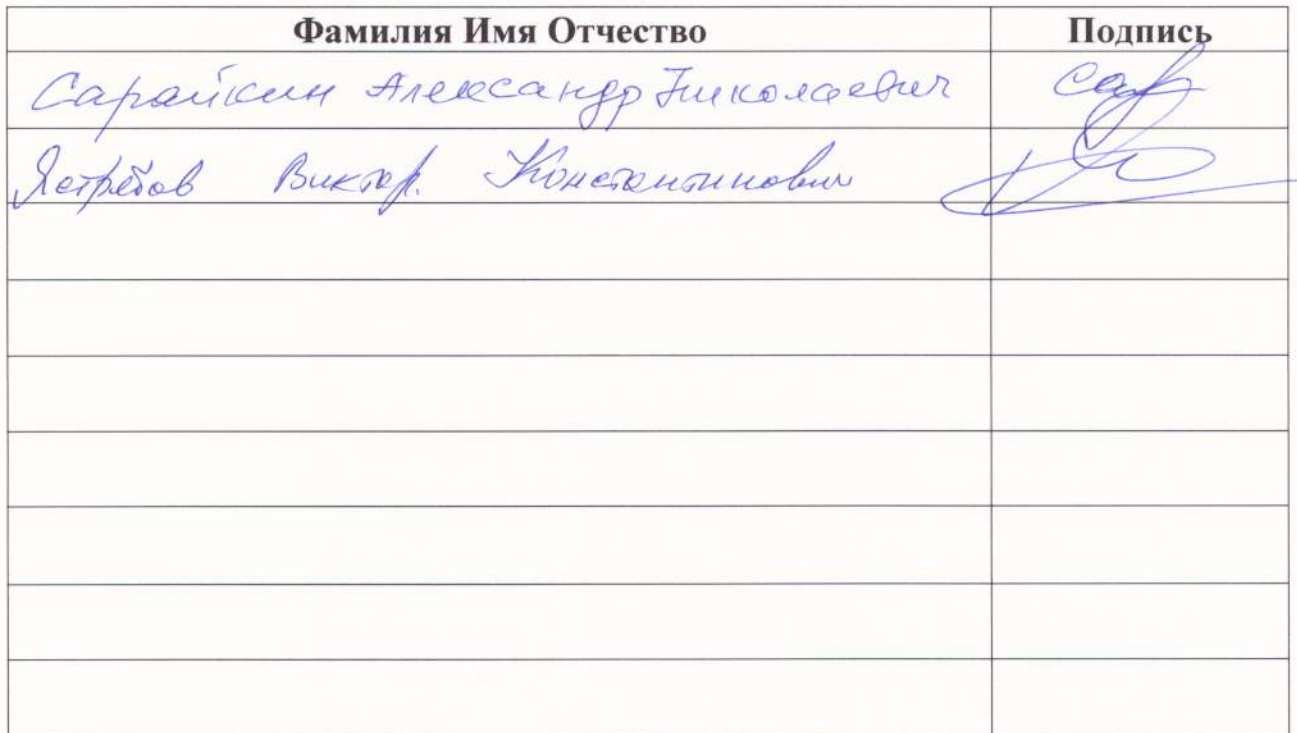 Фамилия Имя Отчество Подпись
Сарайкин Александр Николаевич
Ястребов Виктор. Константинович